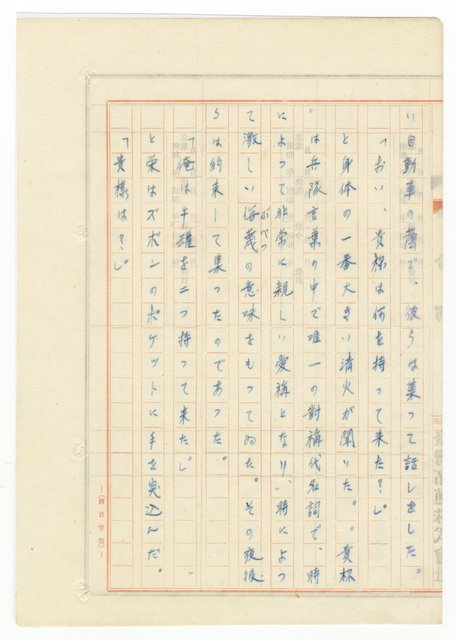 い自動車の蔭で、彼らは集って話しをした。
「おい、貴様は何を持って来た？」
と身体の一番大きい清火が聞いた。。貴様
は兵隊言葉の中で唯一の対稱代名詞で、時
によって非常に親しい愛稱となり、時によっ
て激しい侮蔑の意味をもってゐた。その夜彼
ぶべつ
らは約束して集ったのであった。
「俺は牛罐を二つ持って来た。」
と栄はズボンのポケットに手を突込んだ。
「貴様は？」